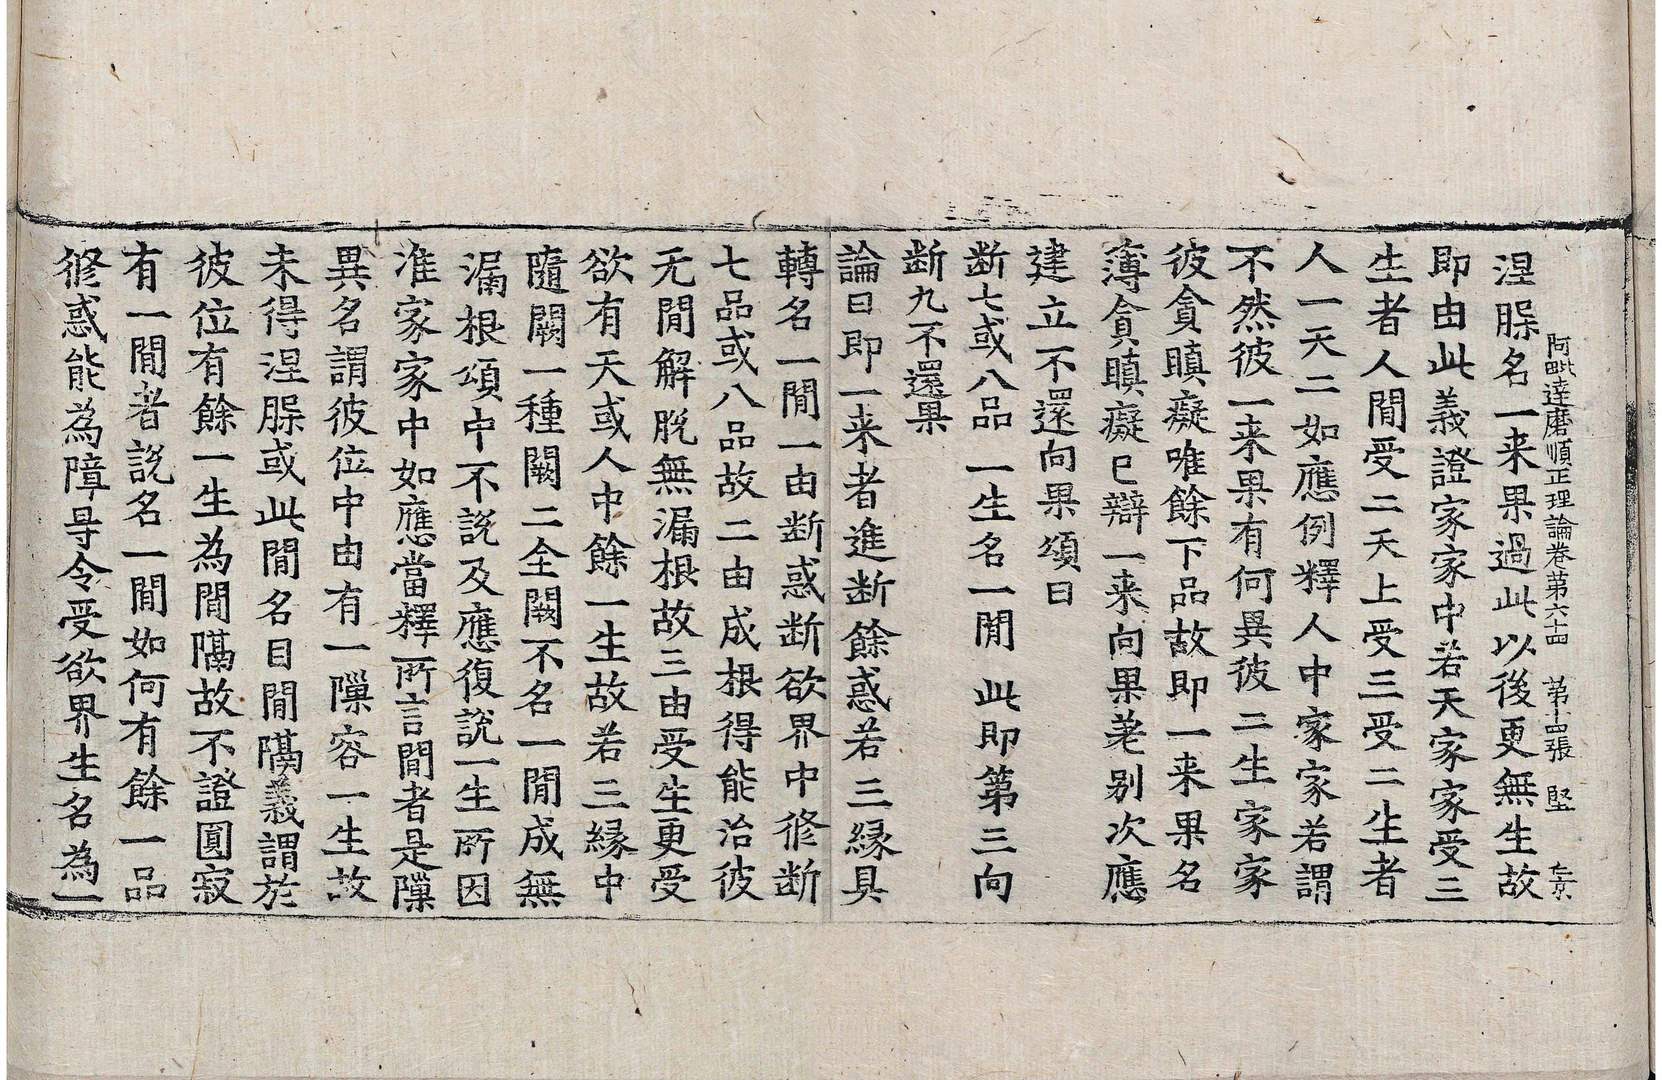 阿毗達磨順正理論卷第六十四　第十四張　堅
涅腺名一来果過此以後更無生故
即由此義證家家中若天家家受三
生者人閒受二天上受三受二生者
人一天二如應例釋人中家家若謂
不然彼一来果有何異彼二生家家
彼貪瞋癡唯餘下品故即一来果名
薄貪瞋癡已辯一来向果差别次應
建立不還向果頌曰
断七或八品　一生名一閒　此即第三向
断九不還果
論曰即一来者進断餘惑若三縁具
轉名一閒一由断惑断欲界中修断
七品或八品故二由成根得能治彼
无閒解脫無漏根故三由受生更受
欲有天或人中餘一生故若三縁中
隨闕一種闕二全闕不名一閒成無
漏根頌中不說及應復說一生所因
准家家中如應當釋所言閒者是隟
異名謂彼位中由有一隟容一生故
未得涅腺或此閒名目閒隔義謂於
彼位有餘一生為閒隔故不證圓寂
有一閒者說名一閒如何有餘一品
修惑能為障㝵令受欲界生名為一